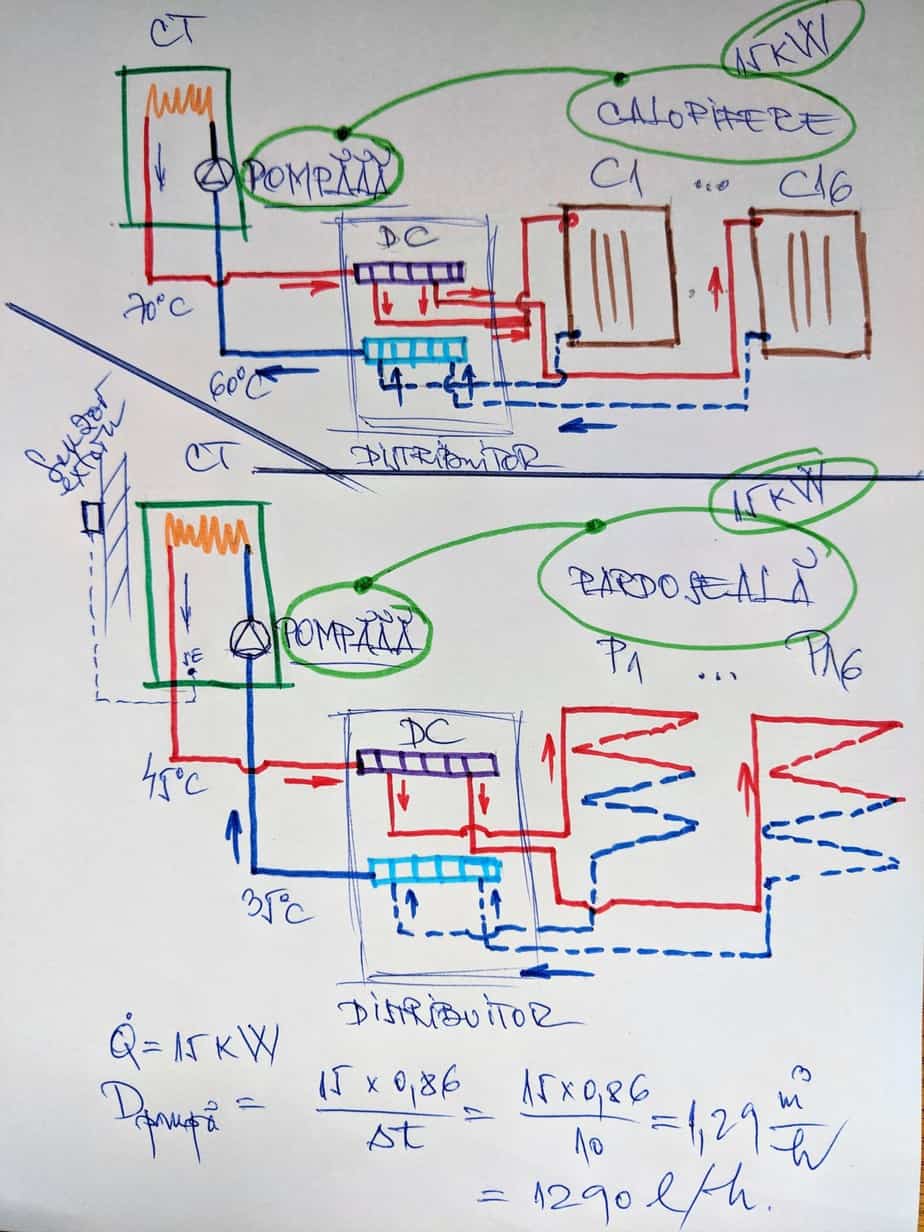 CT
15KW
CALORIFERE
POMPĂĂĂ
C1 ... C16
DC
70°C
60°C
DISTRIBUITOR
SENZOR
EXTERN
CT
15KW
PARDOSEALĂ
POMPĂĂĂ
P1 ... P16
SE
DC
45°C
35°C
DISTRIBUITOR
Q̇ = 15 KW
Dpompă = 15 x 0,86 / Δt = 15 x 0,86 / 10 = 1,29 m³/h
= 1290 l/h.